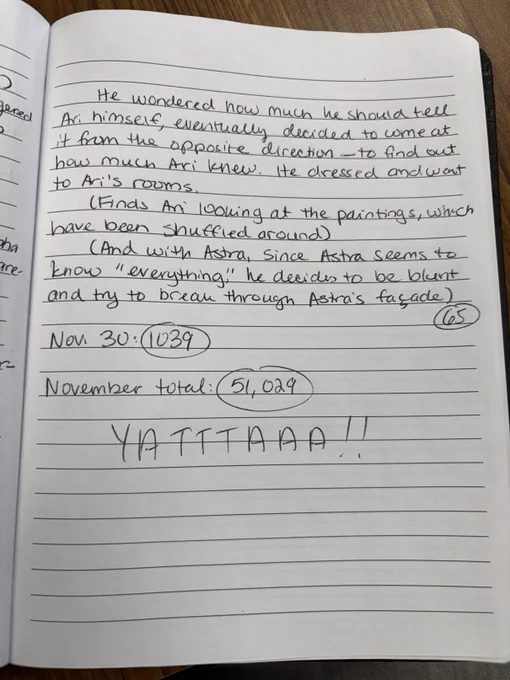 He wondered how much he should tell
Ari himself, eventually decided to come at
it from the opposite direction — to find out
how much Ari knew. He dressed and went
to Ari's rooms.
(Finds Ari looking at the paintings, which
have been shuffled around)
(And with Astra, since Astra seems to
know "everything," he decides to be blunt
and try to break through Astra's façade)
65
Nov. 30: 1039
November total: 51,029
YATTTAAA!!
gened